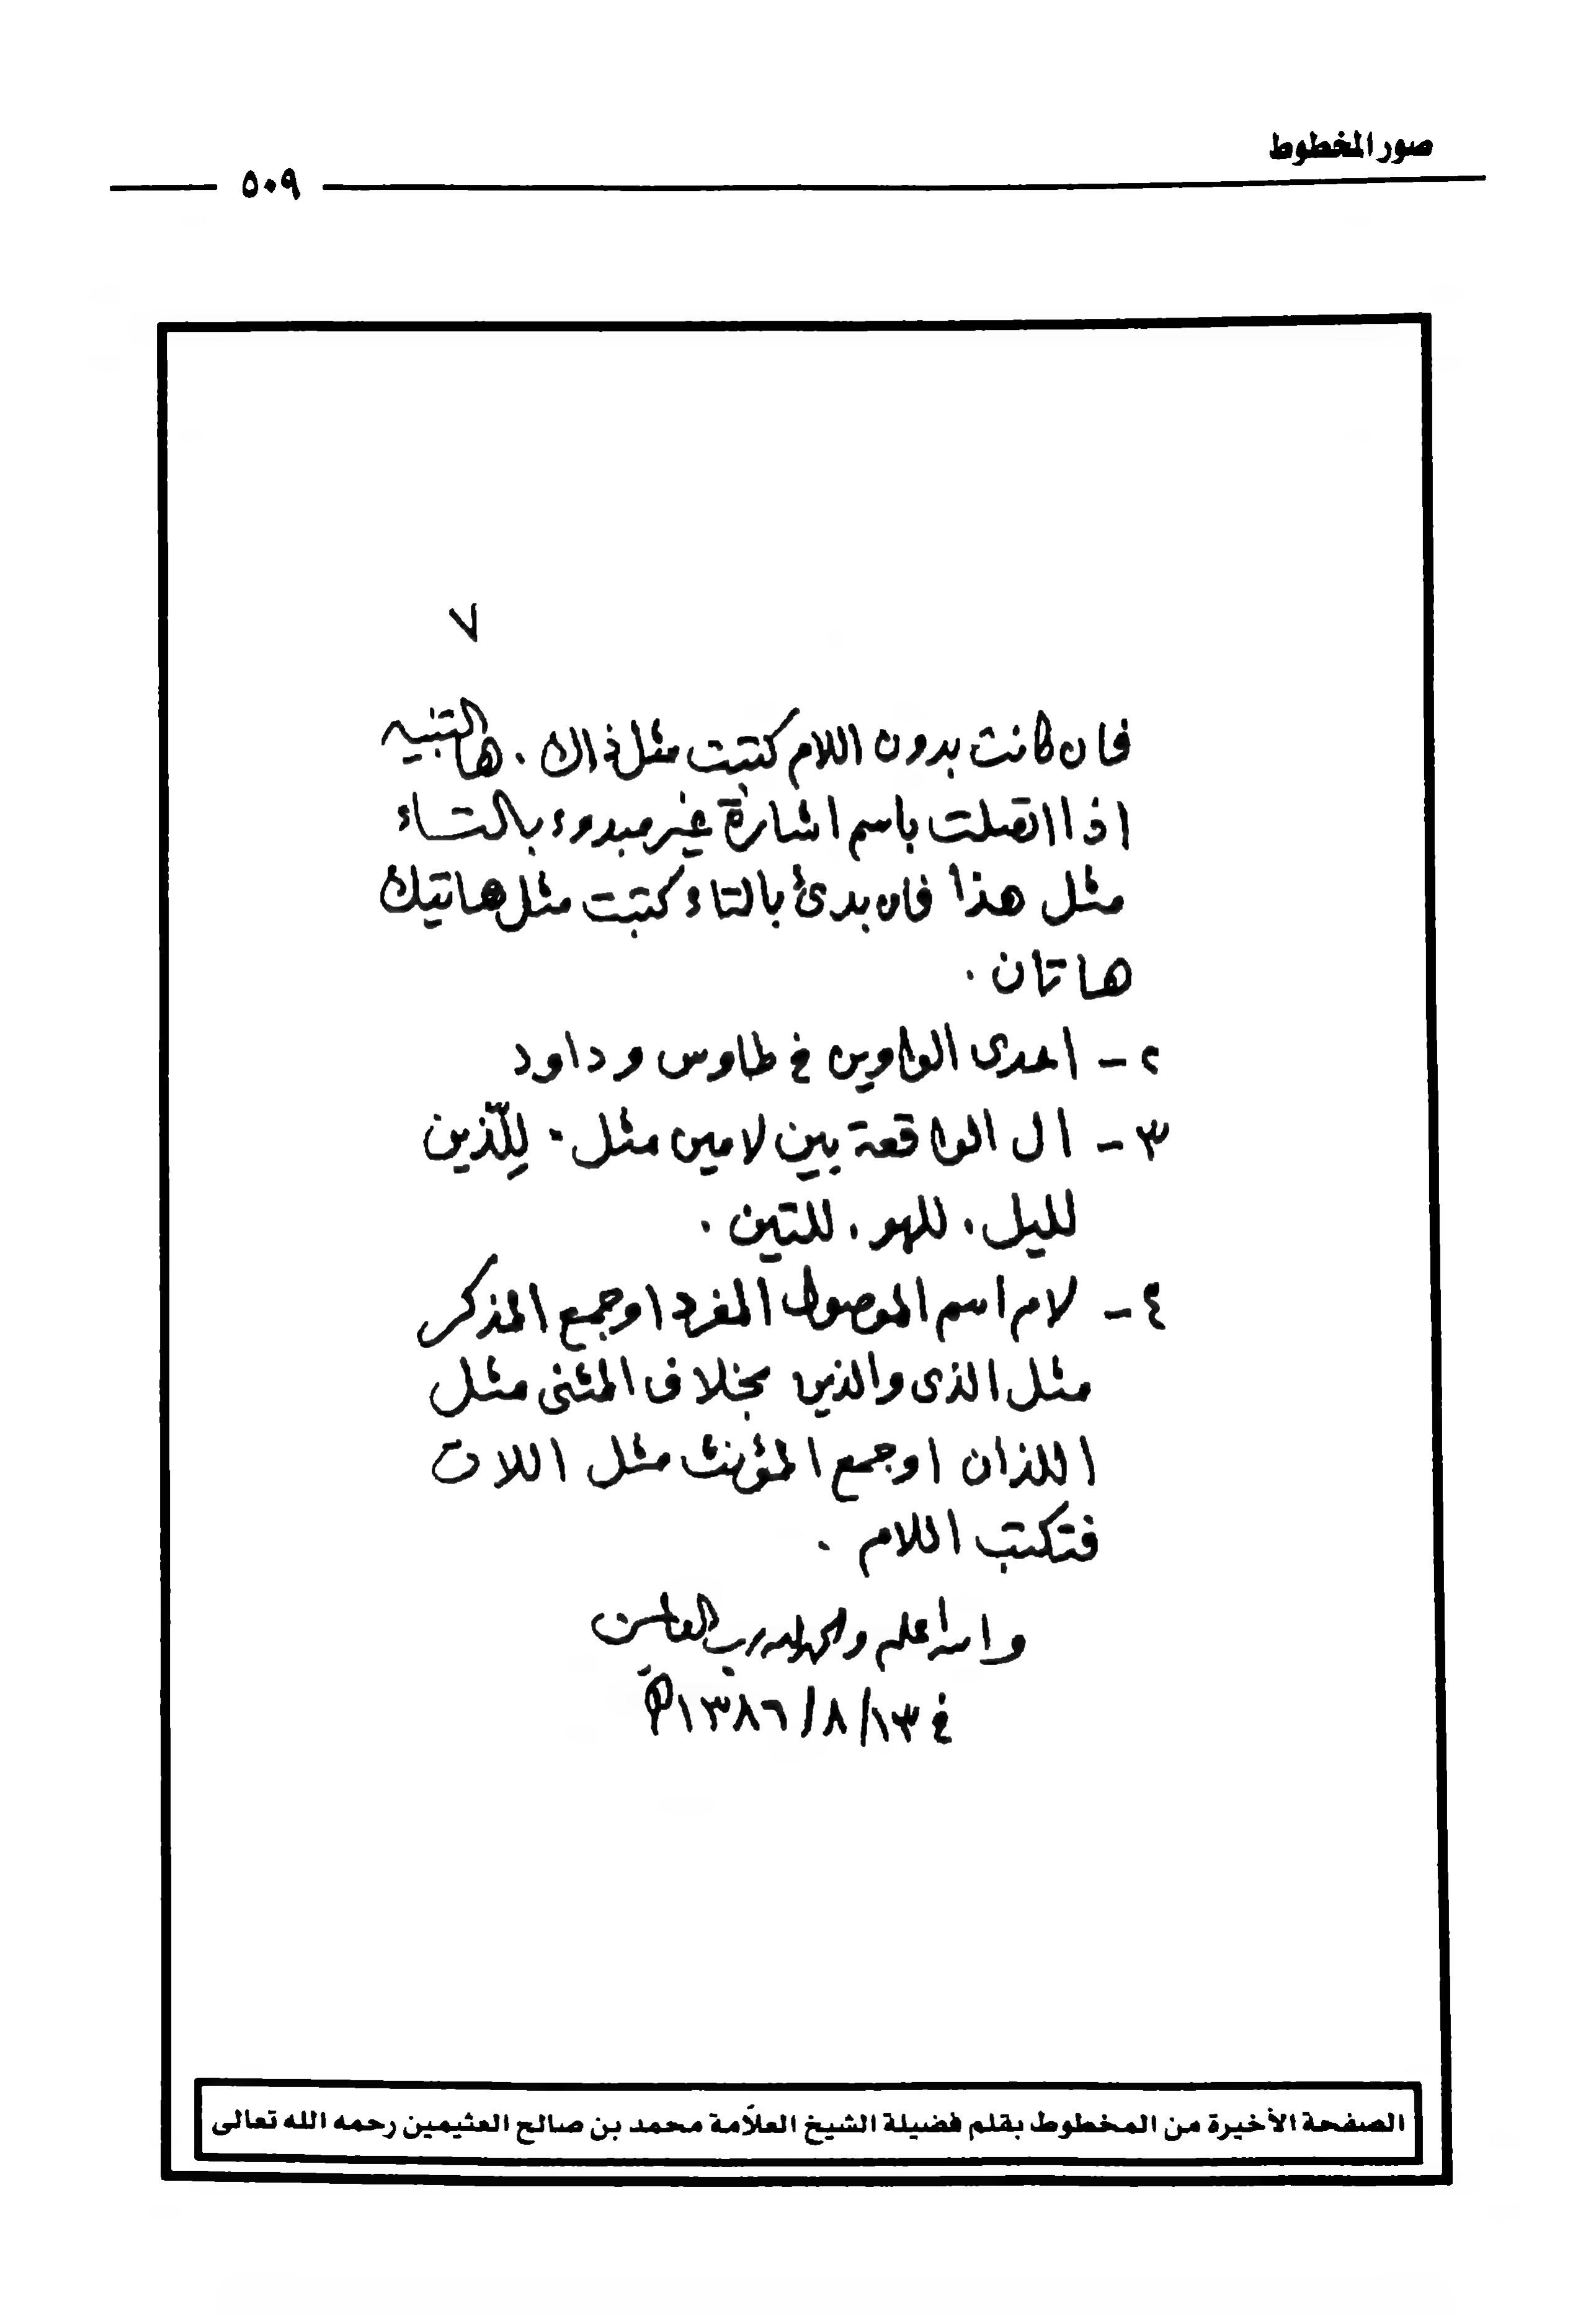 صور المخطوط
٥٠٩
٧
فان كانت بدون اللام كتبت مثل ذاك . ها التنبيه
اذا اتصلت باسم اشارة غير مبدوء بالتاء
مثل هذا فان بدئ بالتاء كتبت مثل هاتيك
هاتان .
٢ - احدى الواوين في طاوس و داود
٣ - ال الواقعة بين لامين مثل : لِلّذين
لليل ، للهو ، للتين .
٤ - لام اسم الموصول المفرد او جمع المذكر
مثل الذى والذين بخلاف المثنى مثل
اللذان او جمع المؤنث مثل اللات
فتكتب اللام .
والله اعلم والحمد لله رب العالمين
في ١٣/٨/١٣٨٦ﻫ
الصفحة الأخيرة من المخطوط بقلم فضيلة الشيخ العلاّمة محمد بن صالح العثيمين رحمه الله تعالى